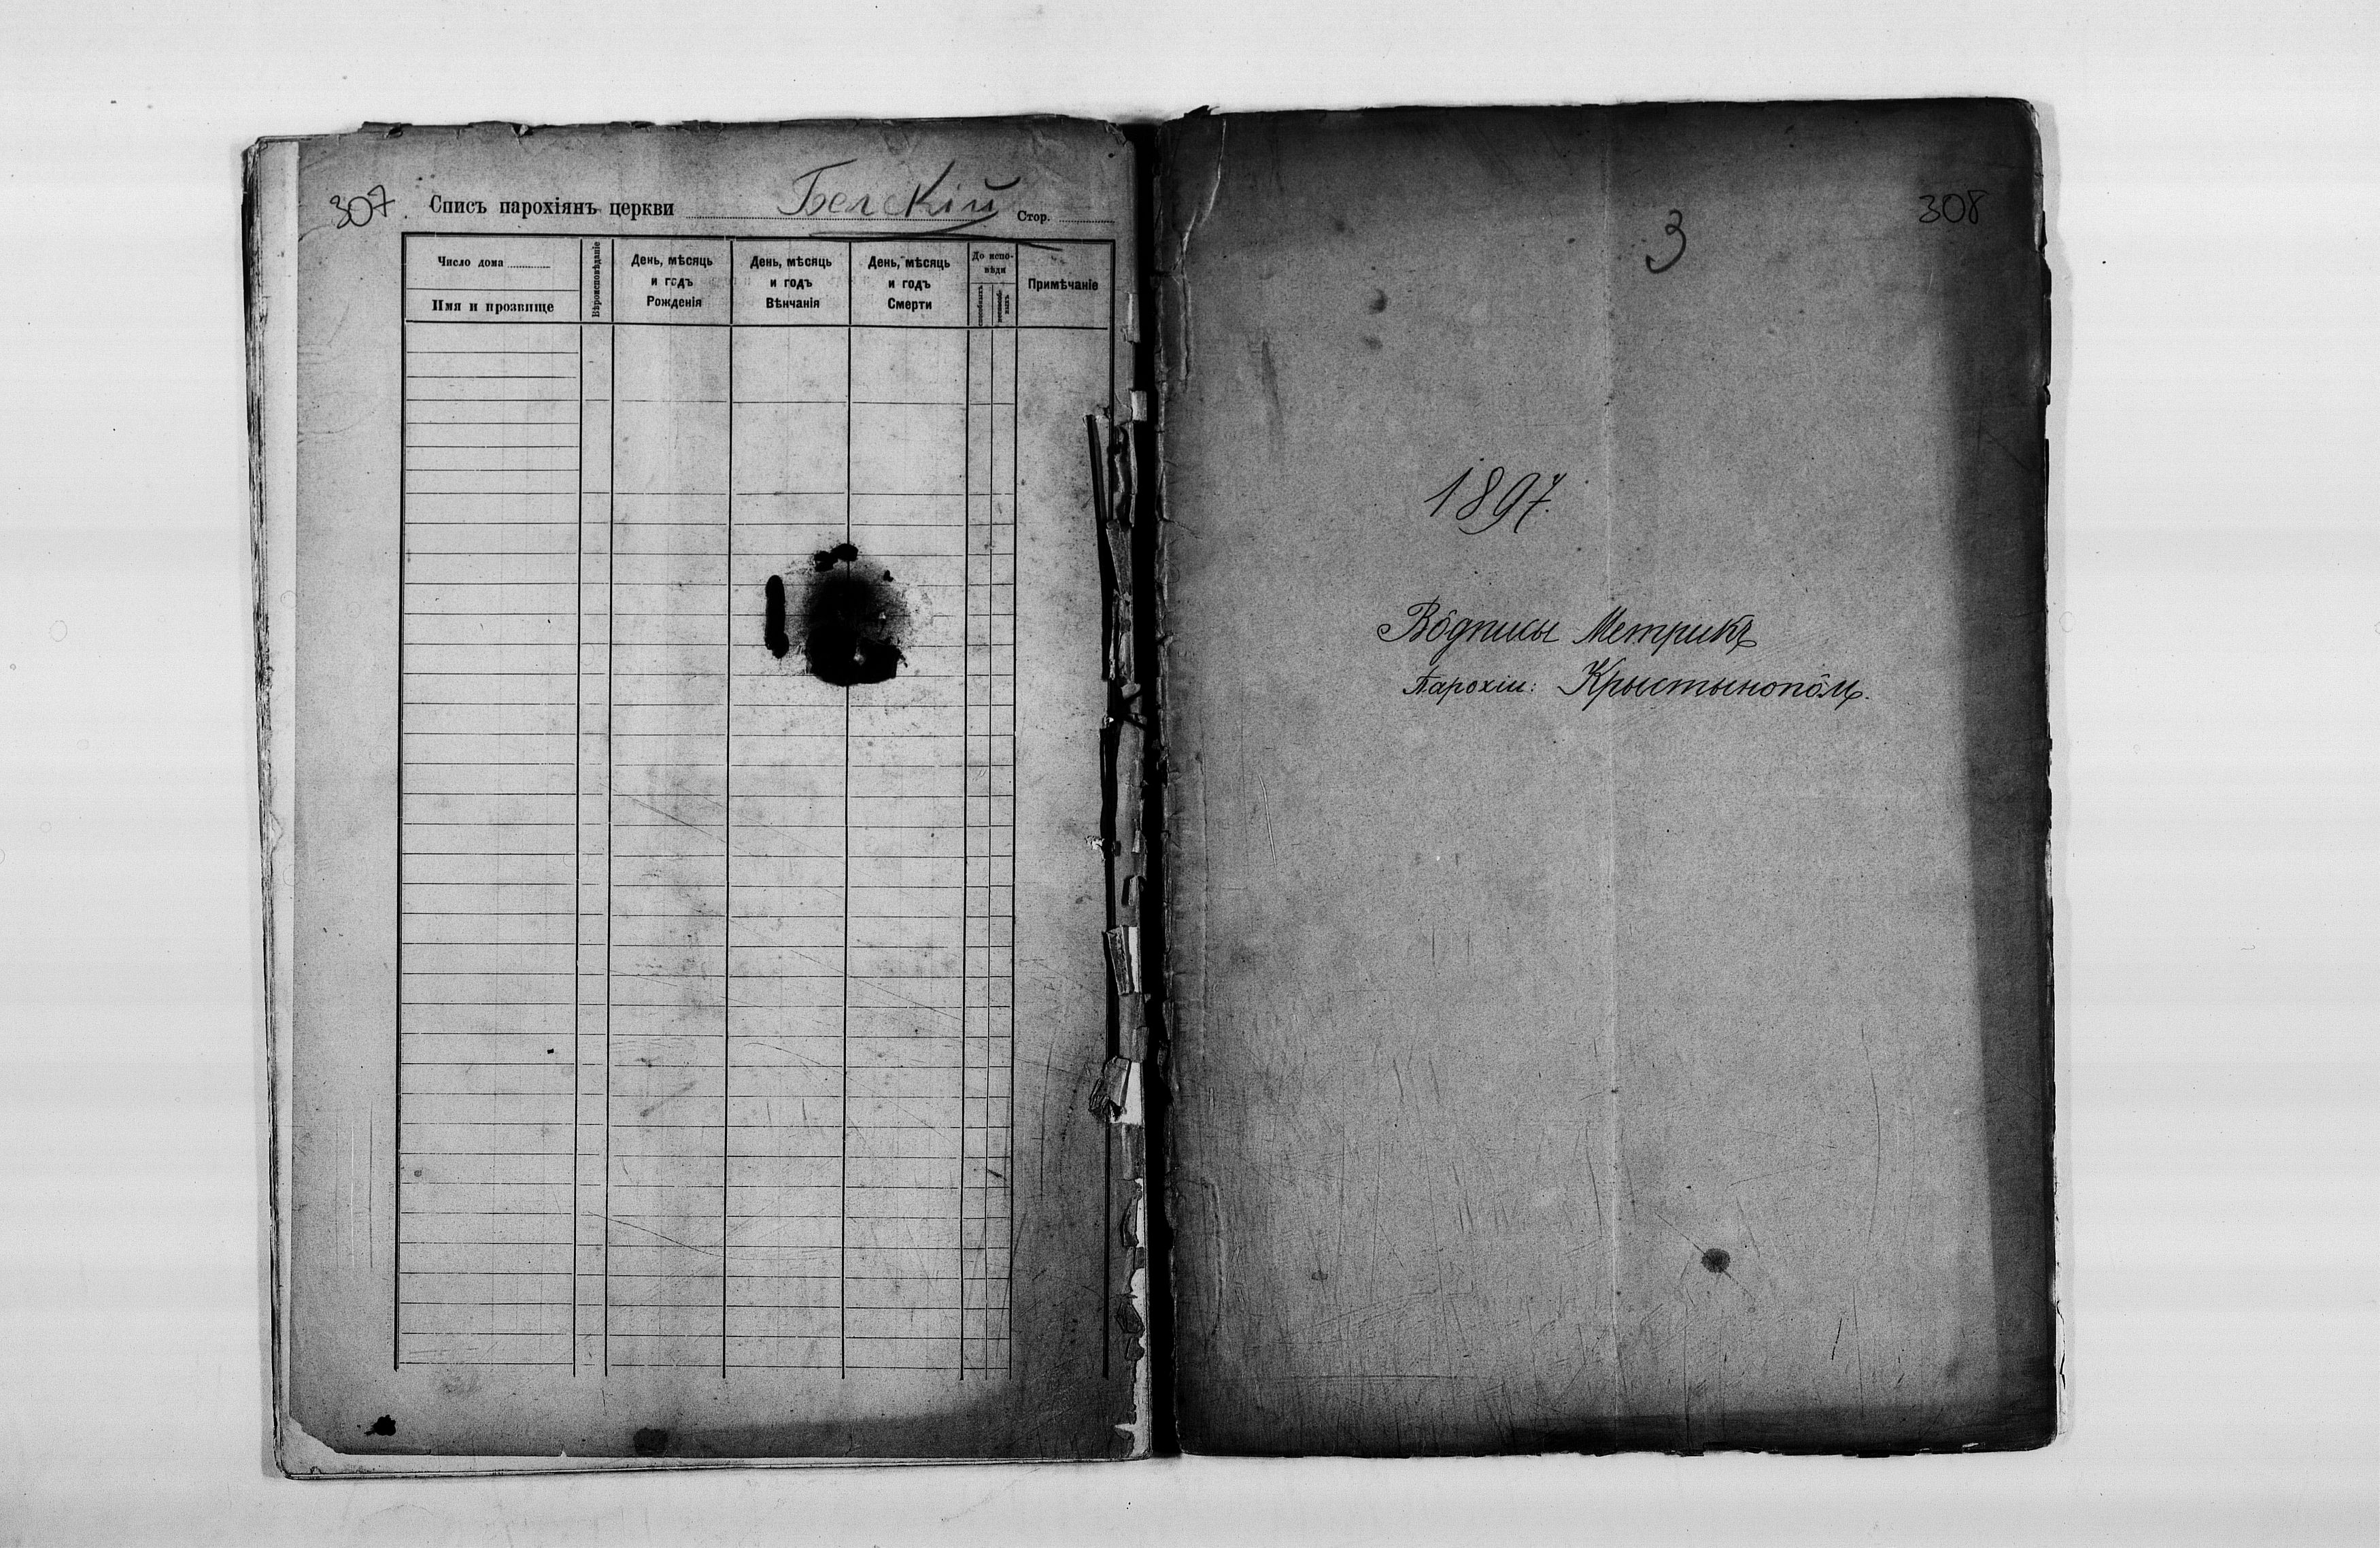 307. Списъ парохіянъ церкви Белскій Стор.
Число дома
Имя и прозвище
Вѣроисповѣданіе
День, мѣсяць
и годъ
Рожденія
День, мѣсяць
и годъ
Вѣнчанія
День, мѣсяць
и годъ
Смерти
До испо-
вѣди
способныхъ
Примѣчаніе
308
3
1897.
Вôдписы Метрикъ
Парохіи: Крыстынопôль.